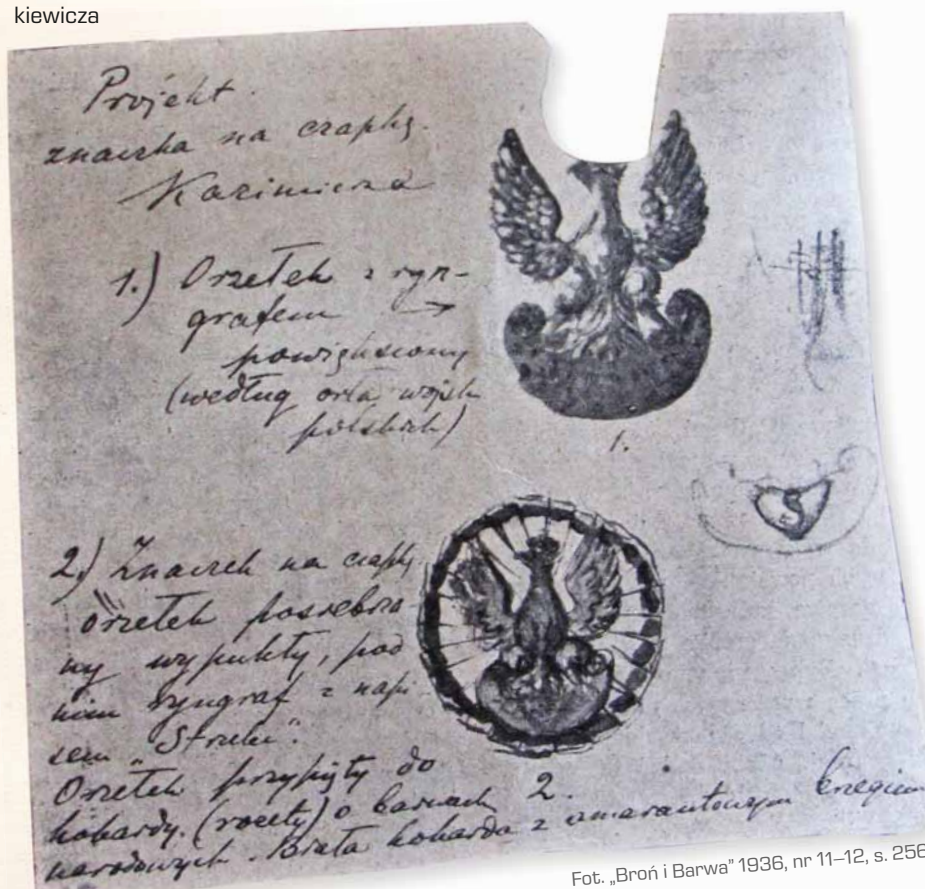 kiewicza
Projekt
znaczka na czapkę.
Kazimierza
1.) Orzełek z ryn-
grafem →
powiększony
(według orła wojsk
polskich)
1.
2.) Znaczek na czapkę
orzełek posrebrza
ny wypukły, pod
nim ryngraf z napi
sem „Strzelec".
Orzełek przypięty do
kokardy. (rozety) o barwach 2.
narodowych. Biała kokarda z amarantowym brzegiem
S
Fot. „Broń i Barwa" 1936, nr 11–12, s. 256